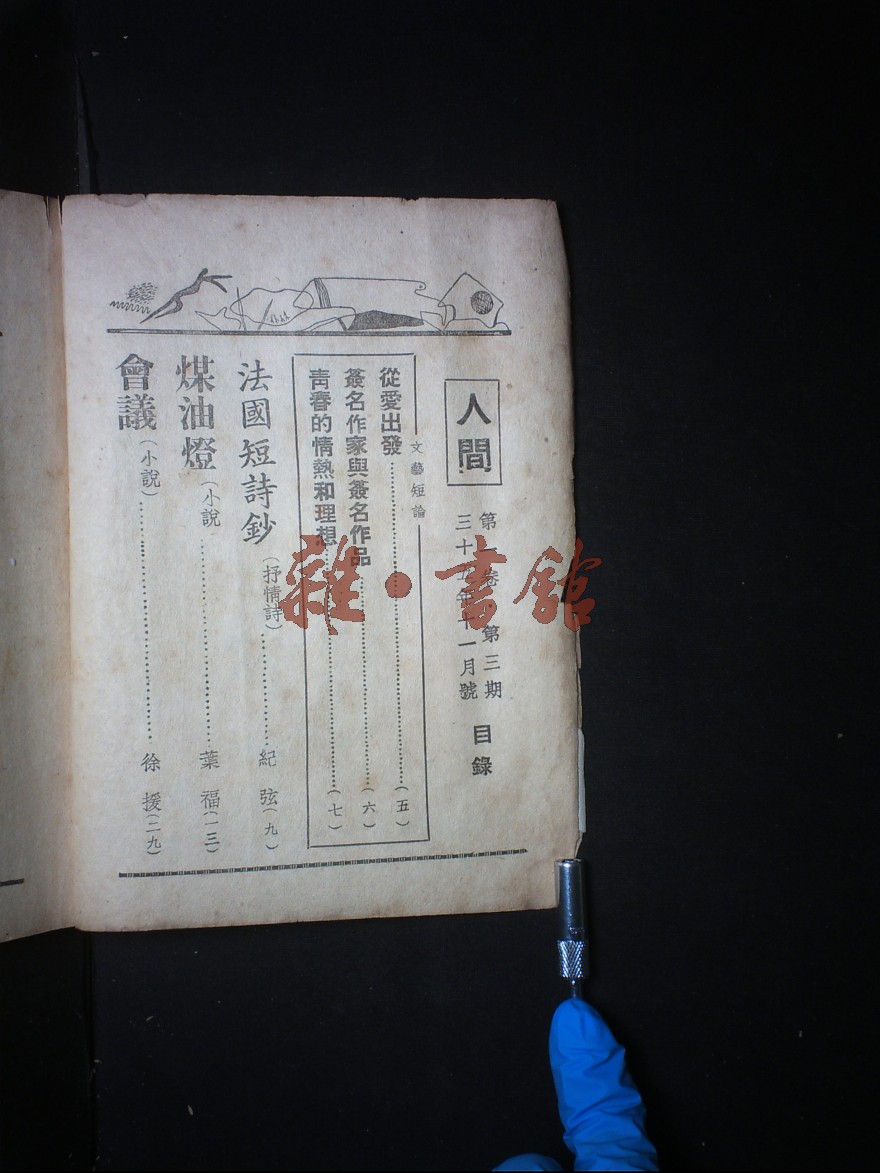 人間
第 卷 第三期
三十 年十一月號
目錄
文藝短論
從愛出發……(五)
簽名作家與簽名作品……(六)
靑春的情熱和理想……(七)
法國短詩鈔(抒情詩)……紀弦(九)
煤油燈(小說)……葉福(一三)
會議(小說)……徐援(二九)
雜·書館